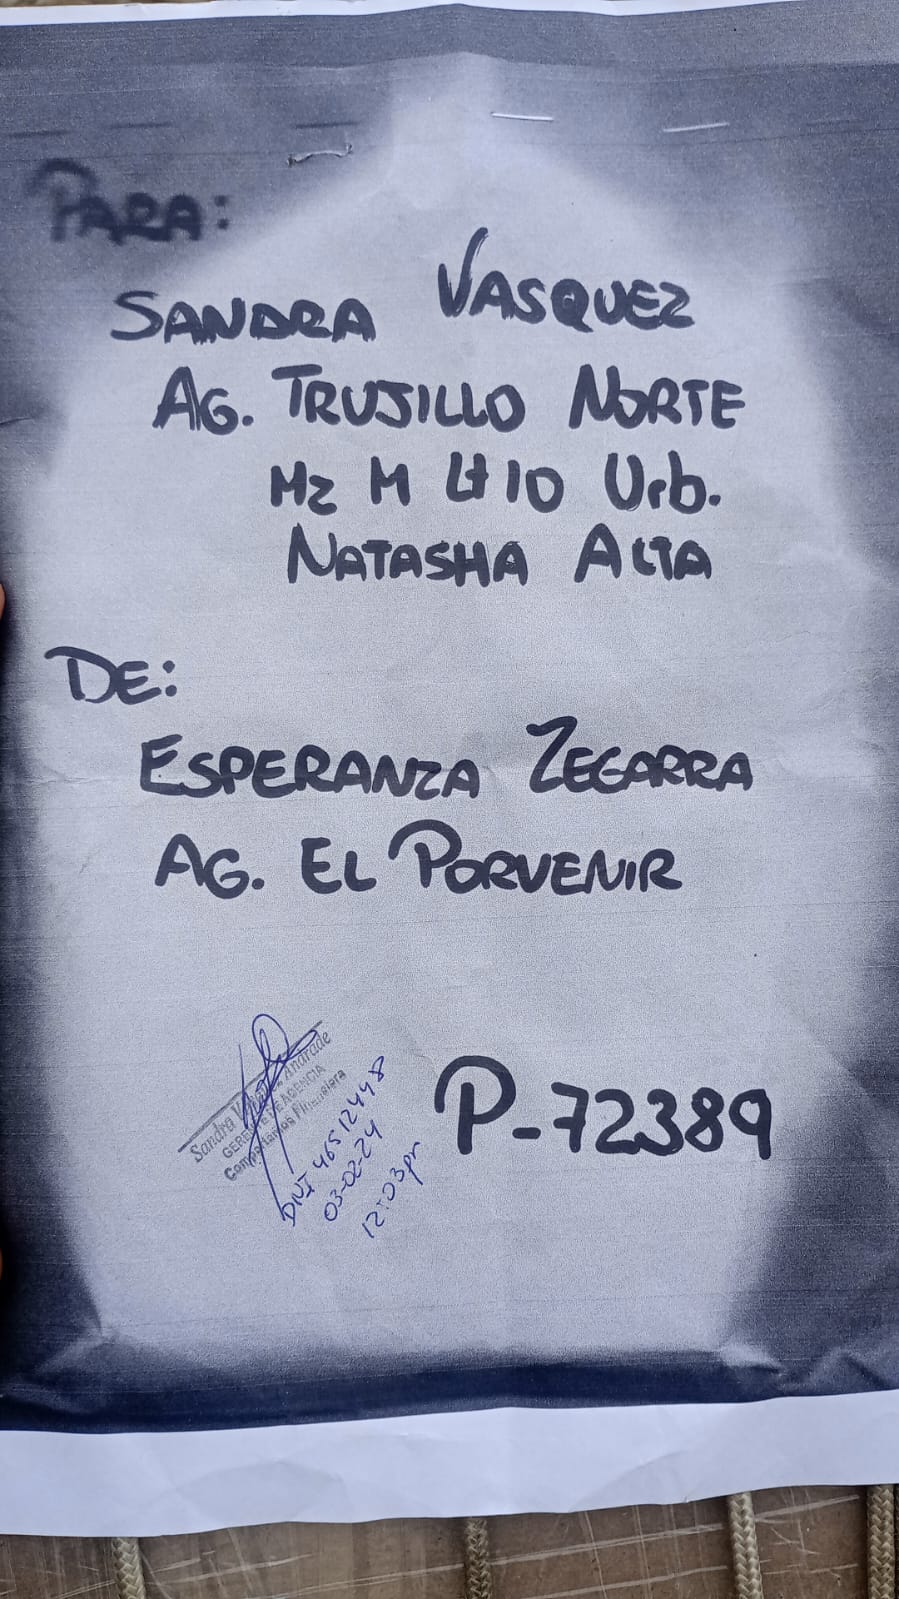 PARA:
SANDRA VASQUEZ
AG. TRUJILLO NORTE
Mz M Lt 10 Urb.
NATASHA ALTA
DE:
ESPERANZA ZEGARRA
AG. EL PORVENIR
P-72389
Sandra Andrade
GERENTE DE AGENCIA
Compartamos Financiera
DNI 46512448
03-02-24
12:03pm